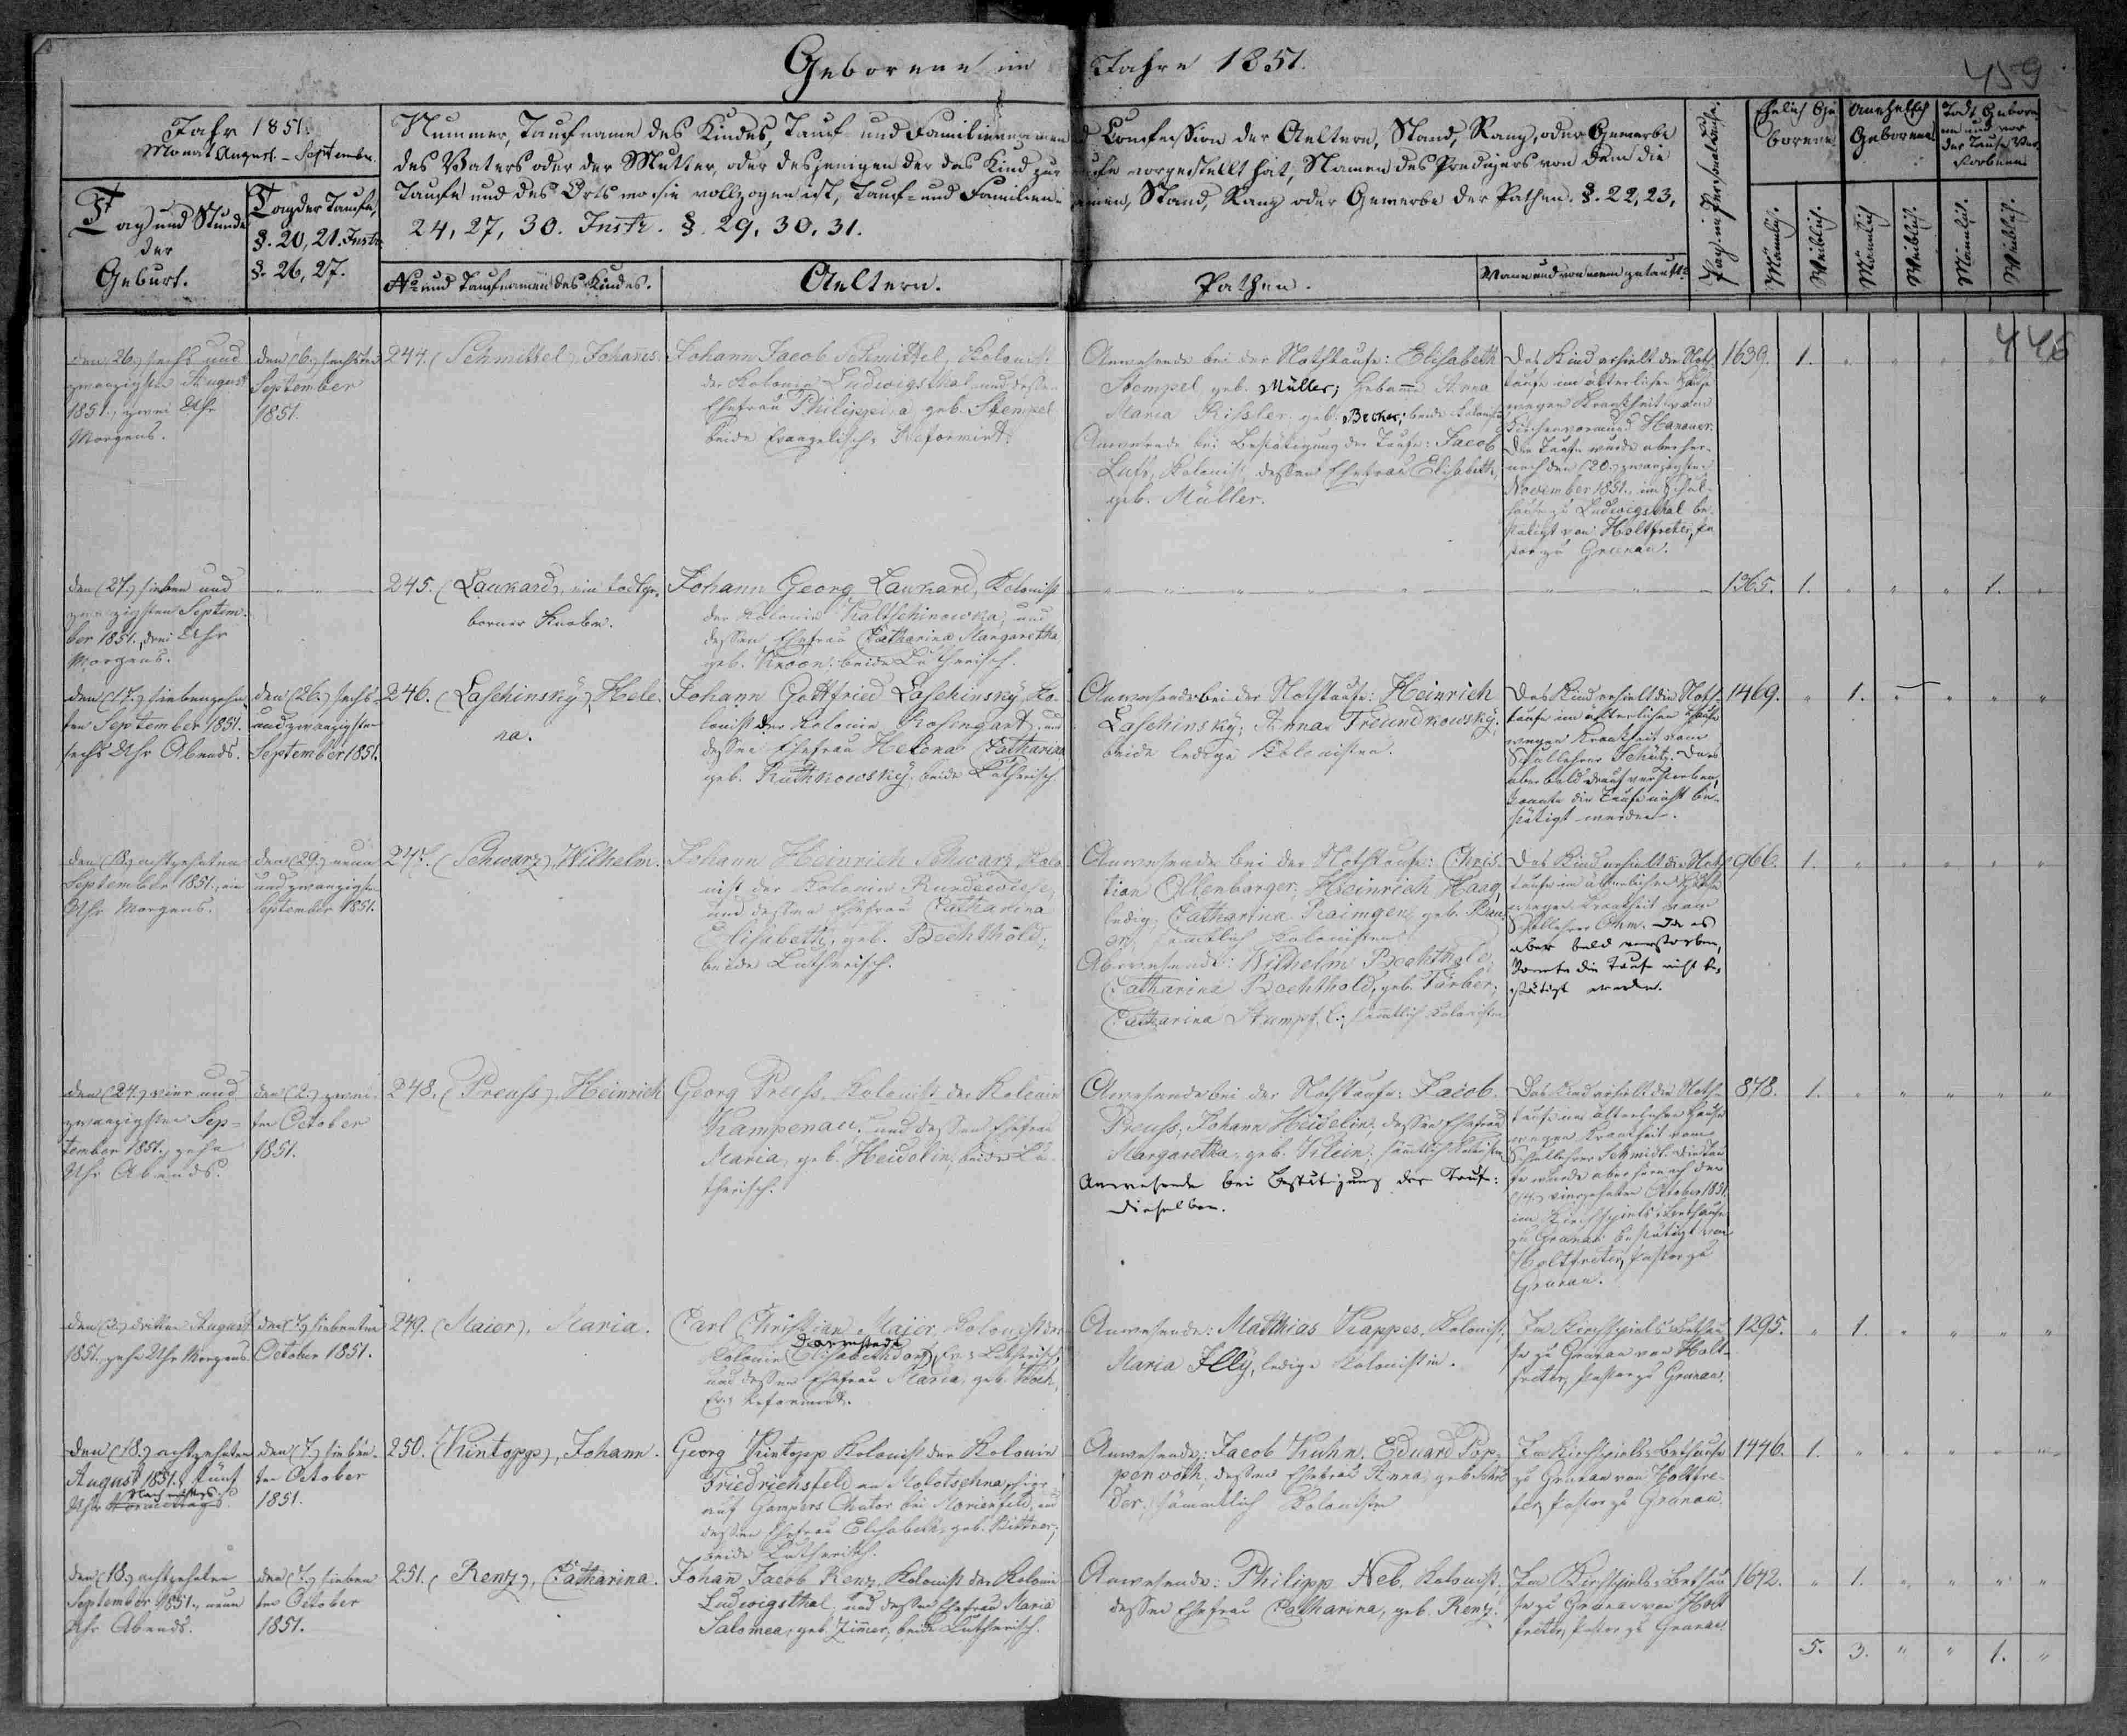 Geborene im Jahre 1851.
459
Jahr 1851.
Monat August. - September.
Tag und Stunde
der
Geburt.
Tag der Taufe,
§. 20, 21. Instr.
§. 26, 27.
Nummer, Taufname des Kindes, Tauf- und Familiennamen
des Vaters oder der Mutter, oder desjenigen der das Kind zur
Taufe und des Orts wo sie vollzogen ist, Tauf- und Familien-
24, 27, 30. Instr. §. 29, 30, 31.
No und Taufnamen des Kindes.
Aeltern.
Confession der Aeltern, Stand, Rang, oder Gewerbe
vorgestellt hat, Namen des Predigers von dem die
Stand, Rang oder Gewerbe der Pathen. §. 22, 23,
Pathen.
Wann und von wem getauft?
Pag. im Personalbuche.
Ehelich Ge-
borene
Unehelich
Geborene
Todt Gebore-
ne und vor
der Taufe Ver-
storbene
Männlich.
Weiblich.
Männlich
Weiblich.
Männlich.
Weiblich.
446
den (26.) sechs und
zwanzigsten August
1851., zwei Uhr
Morgens.
den (6.) sechsten
September
1851.
244. (Schmittel) Johannes.
Johann Jacob Schmittel, Kolonist
der Kolonie Ludwigsthal und dessen
Ehefrau Philippina geb. Stempel
beide Evangelisch-Reformirt.
Anwesende bei der Nothtaufe: Elisabeth
Stempel geb. Müller; Hebamme Anna
Maria Rissler geb. Becker; beide
Anwesende bei Bestätigung der Taufe: Jacob
Luft, Kolonist, dessen Ehefrau Elisabeth,
geb. Müller.
Das Kind erhielt die Noth-
taufe im älterlichen Hause
wegen Krankheit vom
Kirchenvormund Hanauer.
Die Taufe wurde aber her-
nach den (20.) zwanzigsten
November 1851., im Schul-
hause zu Ludwigsthal be-
stätigt von Holtfreter, Pa-
stor zu Grunau.
1639. 1. " " " " "
den (27.) sieben und
zwanzigsten Septem-
ber 1851., drei Uhr
Morgens.
245. (Laukard), ein todtge-
borner Knabe.
Johann Georg Laukard, Kolonist
der Kolonie Kaltschinowka, und
dessen Ehefrau Catharina Margaretha
geb. Kroon: beide Lutherisch.
1365. 1. " " " 1. "
den (17.) siebenzehn-
ten September 1851.
sechs Uhr Abends.
den (26.) sechs
und zwanzigsten
September 1851.
246. (Laschinsky), Hele-
na.
Johann Gottfried Laschinsky, Ko-
lonist der Kolonie Rosengart, und
dessen Ehefrau Helena Catharina
geb. Ruthkowsky, beide Lutherisch.
Anwesende bei der Nothtaufe: Heinrich
Laschinsky; Anna Freundkowsky,
beide ledige Kolonisten.
Das Kind erhielt die Noth-
taufe im älterlichen Hause
wegen Krankheit vom
Schullehrer Schütz. Da es
aber bald drauf verstorben,
konnte die Taufe nicht be-
stätigt werden.
1469. " 1. " " " "
den (18.) achtzehnten
September 1851., ein
Uhr Morgens.
den (29.) neun
und zwanzigsten
September 1851.
247. (Schwarz), Wilhelm.
Johann Heinrich Schwarz, Kolo-
nist der Kolonie Rundewiese,
und dessen Ehefrau Catharina
Elisabeth, geb. Bechthold,
beide Lutherisch.
Anwesende bei der Nothtaufe: Chris-
tian Ollenborger; Heinrich Haag,
ledig; Catharina Raimgen, geb. Bau-
er, sämtlich Kolonisten.
Abwesende: Wilhelm Bechthold,
Catharina Bechthold, geb. Färber,
Catharina Stumpf, l.; sämtlich Kolonisten
Das Kind erhielt die Noth-
taufe im älterlichen Hause
wegen Krankheit vom
Schullehrer Ohm. Da es
aber bald verstorben,
konnte die Taufe nicht be-
stätigt werden.
966. 1. " " " " "
den (24.) vier und
zwanzigsten Sep-
tember 1851., zehn
Uhr Abends.
den (2.) zwei-
ten October
1851.
248. (Preuss), Heinrich
Georg Preuss, Kolonist der Kolonie
Kampenau, und dessen Ehefrau
Maria, geb. Heidelin, beide Lu-
therisch.
Anwesende bei der Nothtaufe: Jacob
Preuss; Johann Heidelin, dessen Ehefrau
Margaretha, geb. Klein, sämtlich Kolonisten
Anwesende bei Bestätigung der Taufe:
dieselben.
Das Kind erhielt die Noth-
taufe im älterlichen Hause
wegen Krankheit vom
Schullehrer Schmidt. Die Tau-
fe wurde aber hernach den
(14.) vierzehnten October 1851.
im Kirchspiels-Bethause
zu Grunau bestätigt von
Holtfreter, Pastor zu
Grunau.
878. 1. " " " " "
den (3.) dritten August
1851., zehn Uhr Morgens.
den (7.) siebenten
October 1851.
249. (Maier), Maria.
Carl Christian Maier, Kolonist der
Darmstadt
Kolonie (Elisabethdorf), Ev. Lutherisch,
und dessen Ehefrau Maria, geb. Koch,
Ev. Reformirt.
Anwesende: Matthias Kappes, Kolonist,
Maria Illy, ledige Kolonistin.
Im Kirchspiels-Bethau-
se zu Grunau von Holt-
freter, Pastor zu Grunau.
1295. " 1. " " " "
den (18.) achtzehnten
August 1851., fünf
Nachmittags.
Uhr Vormittags.
den (7.) sieben-
ten October
1851.
250. (Kintopp), Johann.
Georg Kintopp Kolonist der Kolonie
Friedrichsfeld an Molotschna,
auf Gampers Chutor bei Morienfeld, und
dessen Ehefrau Elisabeth, geb. Bittner;
beide Lutherisch.
Anwesende: Jacob Kuhn; Eduard Pop-
penroth, dessen Ehefrau Anna, geb. Schrö-
der, sämmtlich Kolonisten
Im Kirchspiels-Bethause
zu Grunau von Holtfre-
ter, Pastor zu Grunau.
1446. 1. " " " " "
den (18.) achtzehnten
September 1851., neun
Uhr Abends.
den (7.) sieben-
ten October
1851.
251. (Renz), Catharina.
Johan Jacob Renz, Kolonist der Kolonie
Ludwigsthal, und dessen Ehefrau Maria
Salomea, geb. Zimer, beide Lutherisch.
Anwesende: Philipp Neb, Kolonist,
dessen Ehefrau Catharina, geb. Renz.
Im Kirchspiels-Bethau-
se zu Grunau von Holt-
freter, Pastor zu Grunau.
1642. " 1. " " " "
5. 3. " " 1. "